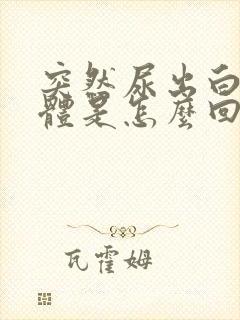 突然尿出白
體是怎麼回
瓦霍姆